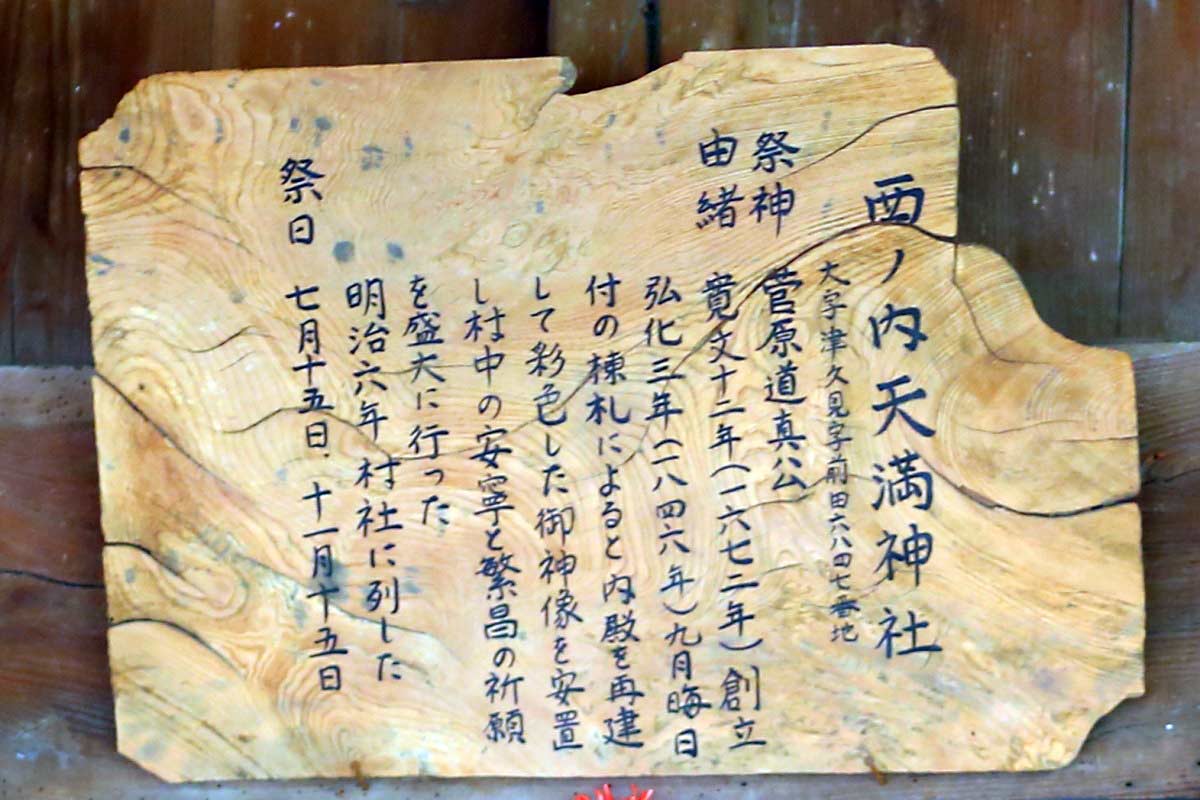 西ノ内天満神社
大字津久見字前田六八四七番地
祭神 菅原道真公
由緒 寛文十二年(一六七二年)創立
弘化三年(一八四六年)九月晦日
付の棟札によると内殿を再建
して彩色した御神像を安置
し村中の安寧と繁昌の祈願
を盛大に行った
明治六年 村社に列した
祭日 七月十五日、十一月十五日